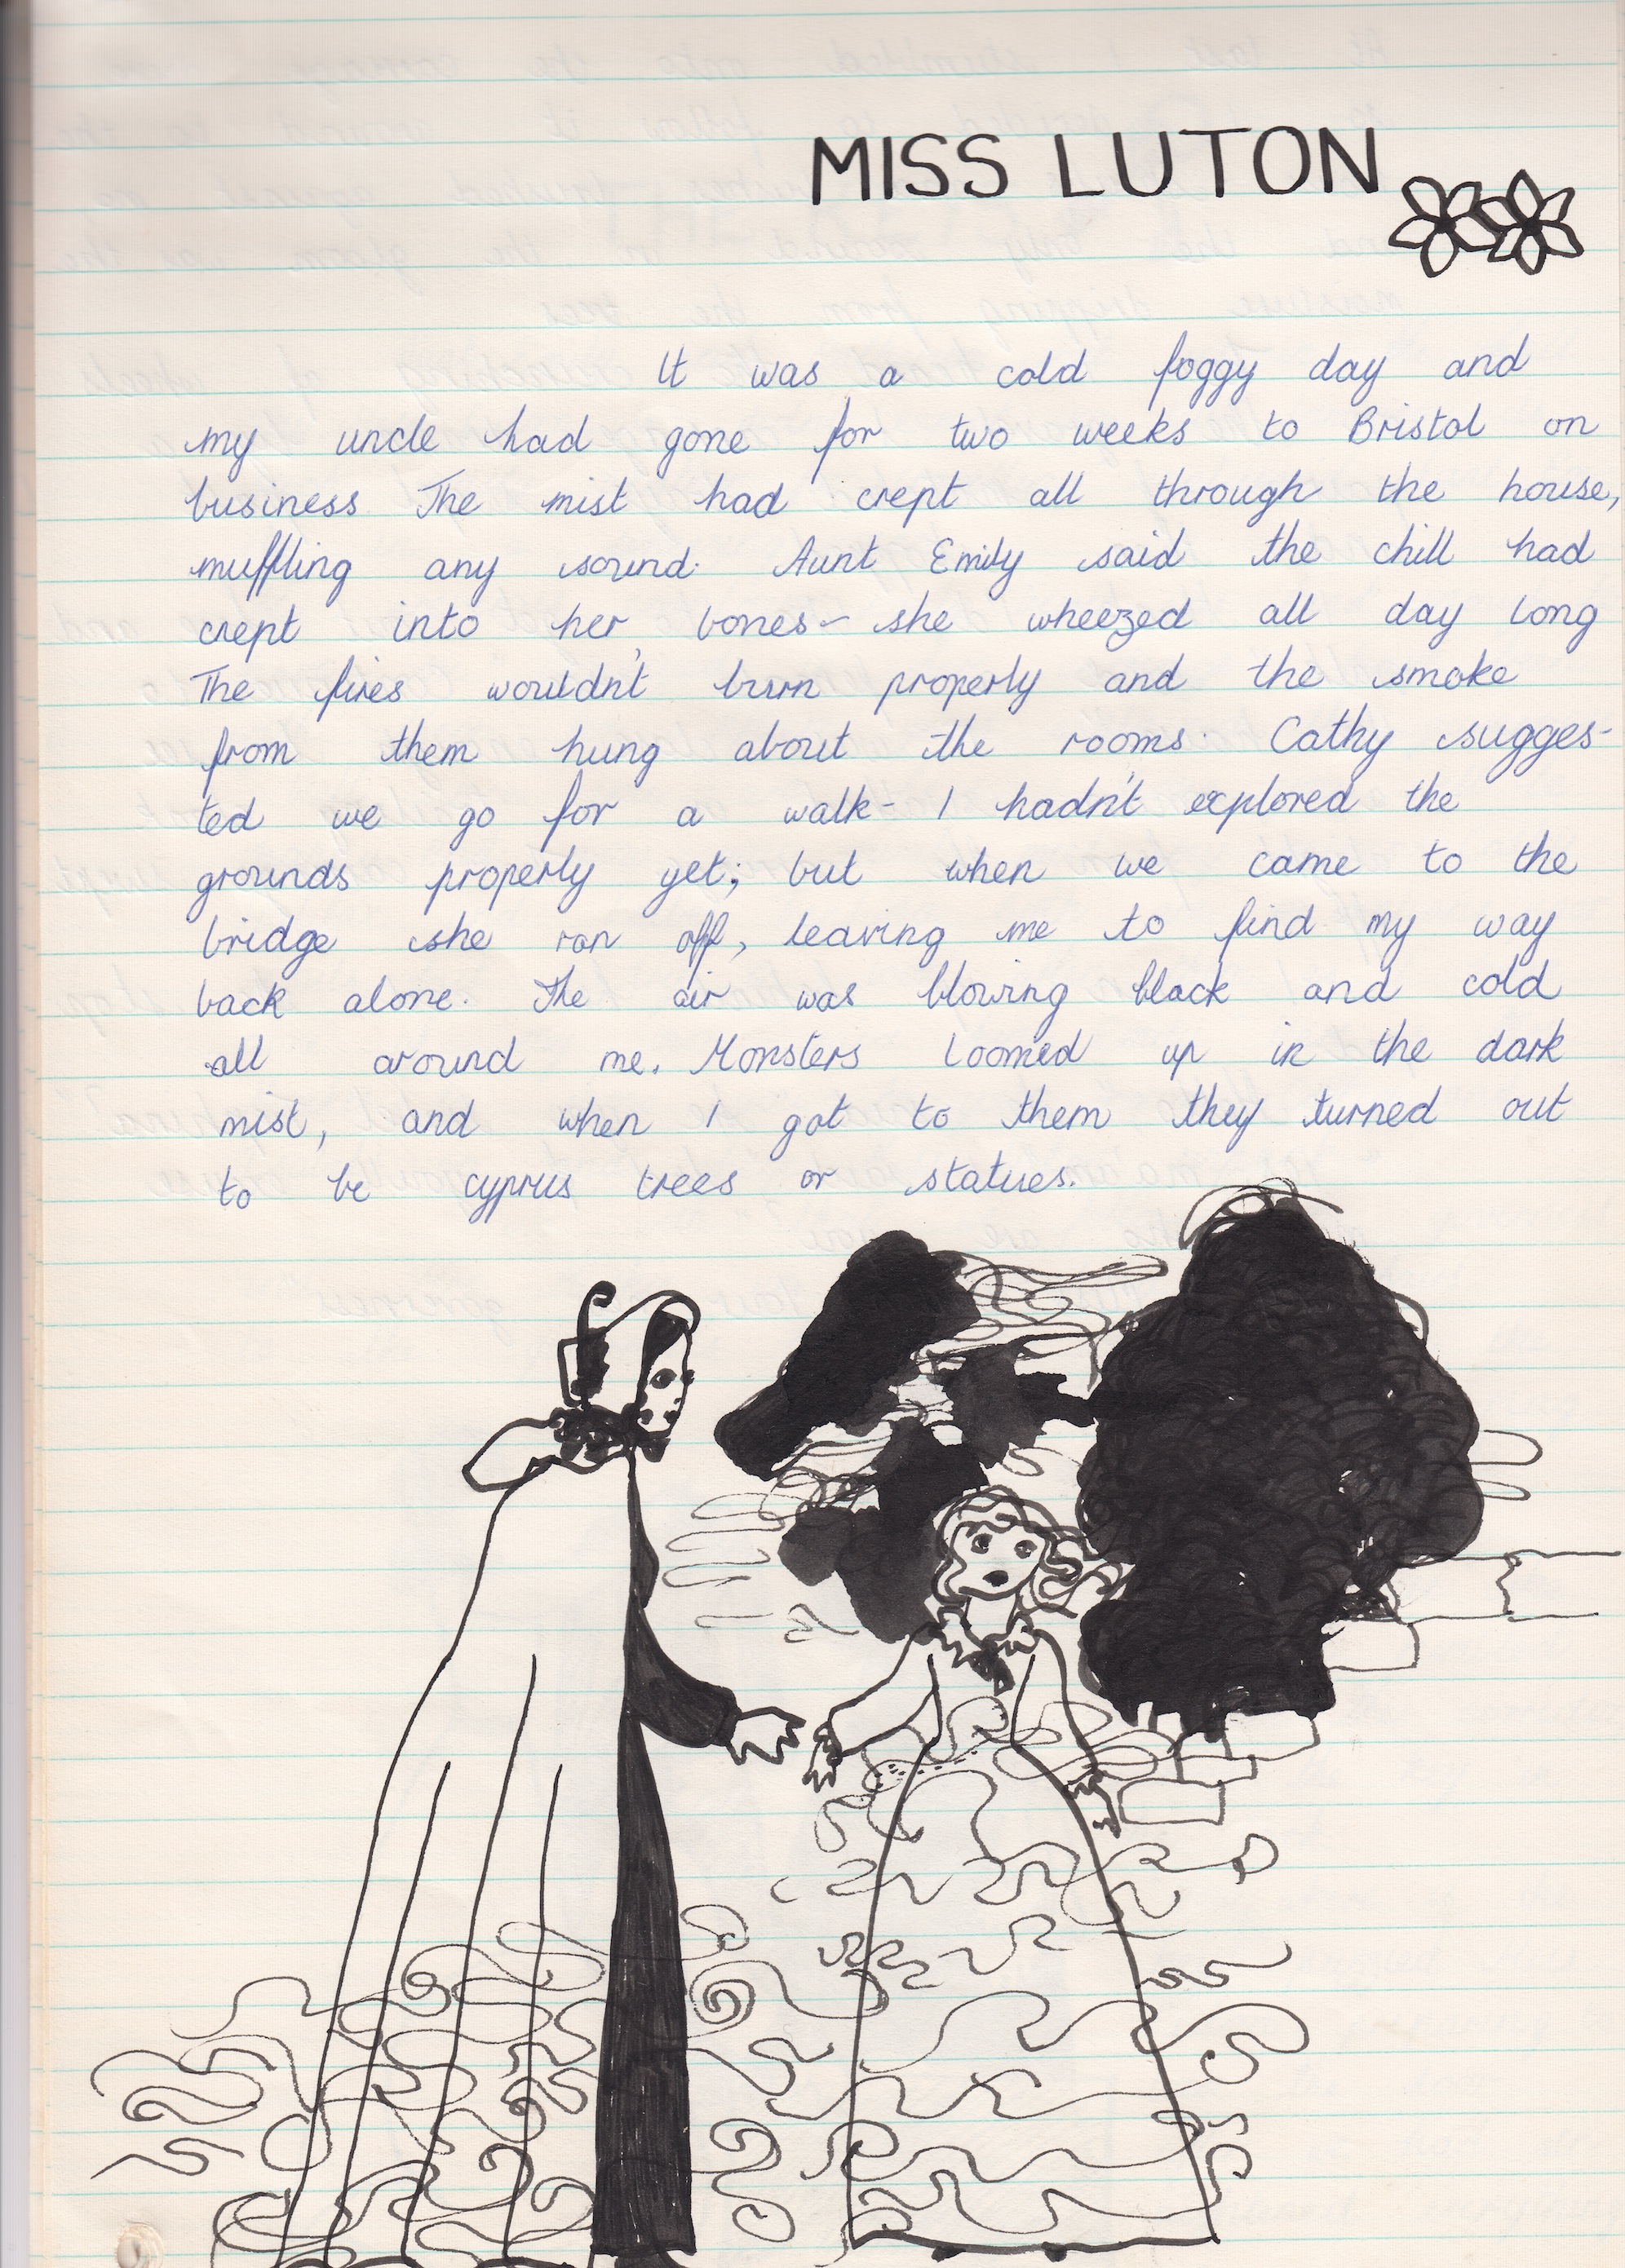 MISS LUTON
It was a cold foggy day and
my uncle had gone for two weeks to Bristol on
business The mist had crept all through the house,
muffling any sound. Aunt Emily said the chill had
crept into her bones - she wheezed all day long
The fires wouldn't burn properly and the smoke
from them hung about the rooms. Cathy sugges-
ted we go for a walk - I hadn't explored the
grounds properly yet; but when we came to the
bridge she ran off, leaving me to find my way
back alone. The air was blowing black and cold
all around me. Monsters loomed up in the dark
mist, and when I got to them they turned out
to be cyprus trees or statues.